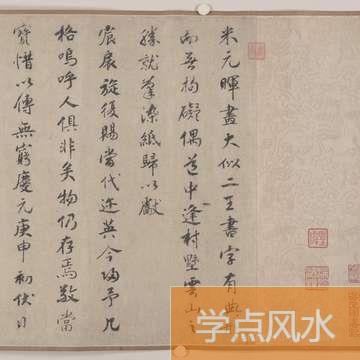 米元暉畫大似二王書字有典
而無拘礙偶道中逢村墅雲山之
勝就筆染紙歸以獻
宸扆旋復賜當代逸英今歸予几
格嗚呼人俱非矣物仍存焉敬當
寶惜以傳無窮慶元庚申初伏日
学点风水